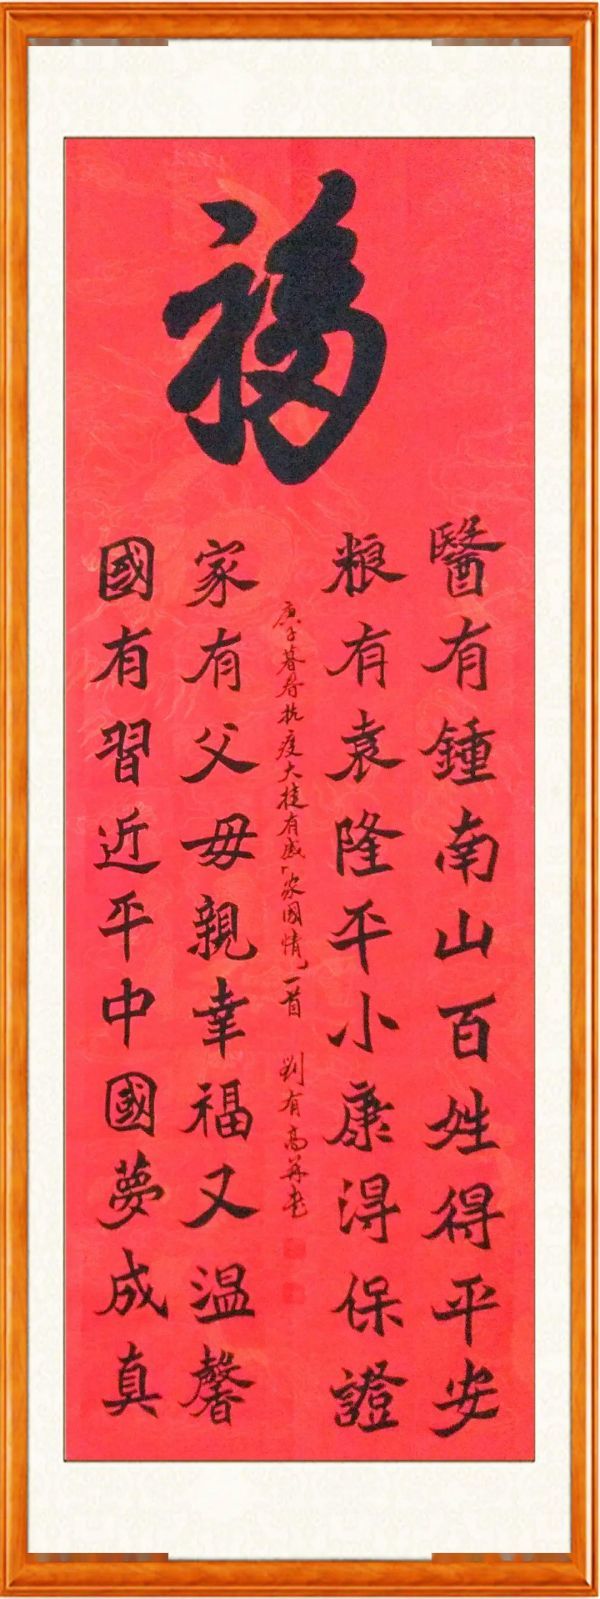 福
醫有鍾南山百姓得平安
粮有袁隆平小康得保證
庚子暮春抗疫大捷有感「家国情」一首 劉有高并書
家有父母親幸福又温馨
國有習近平中國夢成真